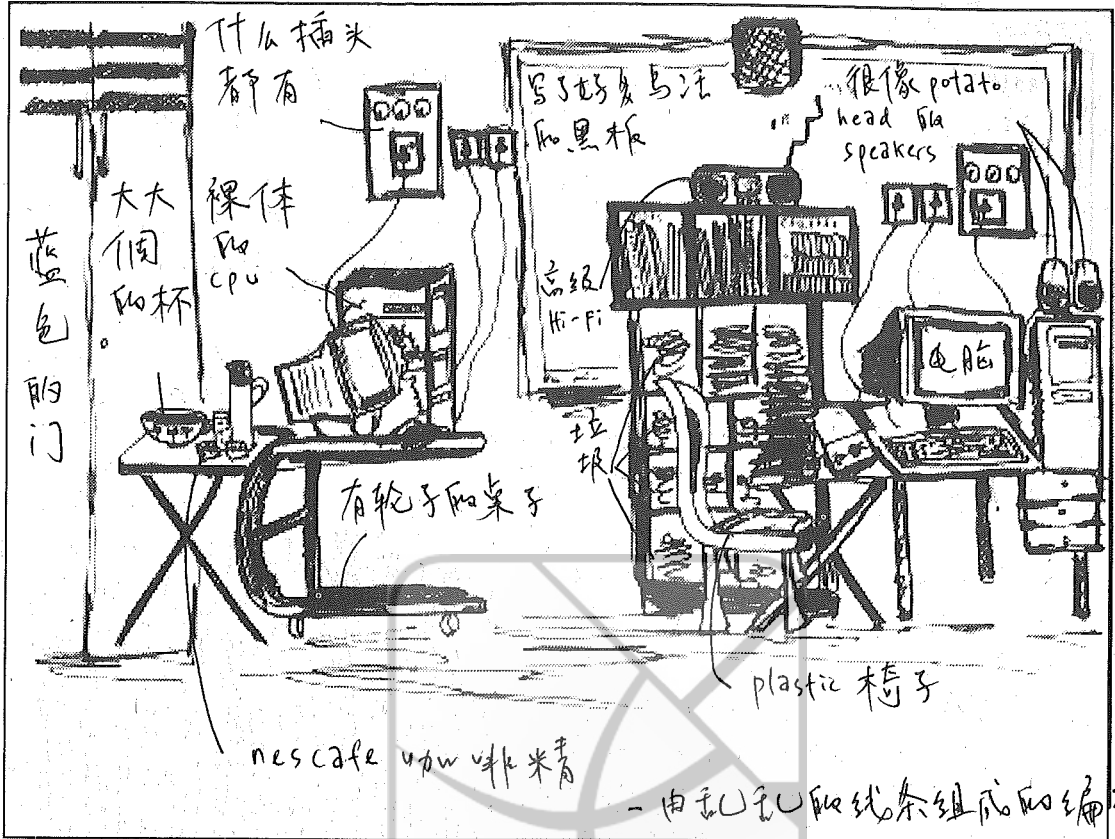 什么插头
都有
写了好多鸟话
的黑板
很像potato
head 的
speakers
大大
個
的杯
裸体
的
cpu
蓝色的门
高级
Hi-Fi
电脑
垃
圾
有轮子的桌子
plastic 椅子
nescafe 咖啡精
- 由乱乱的线条组成的编